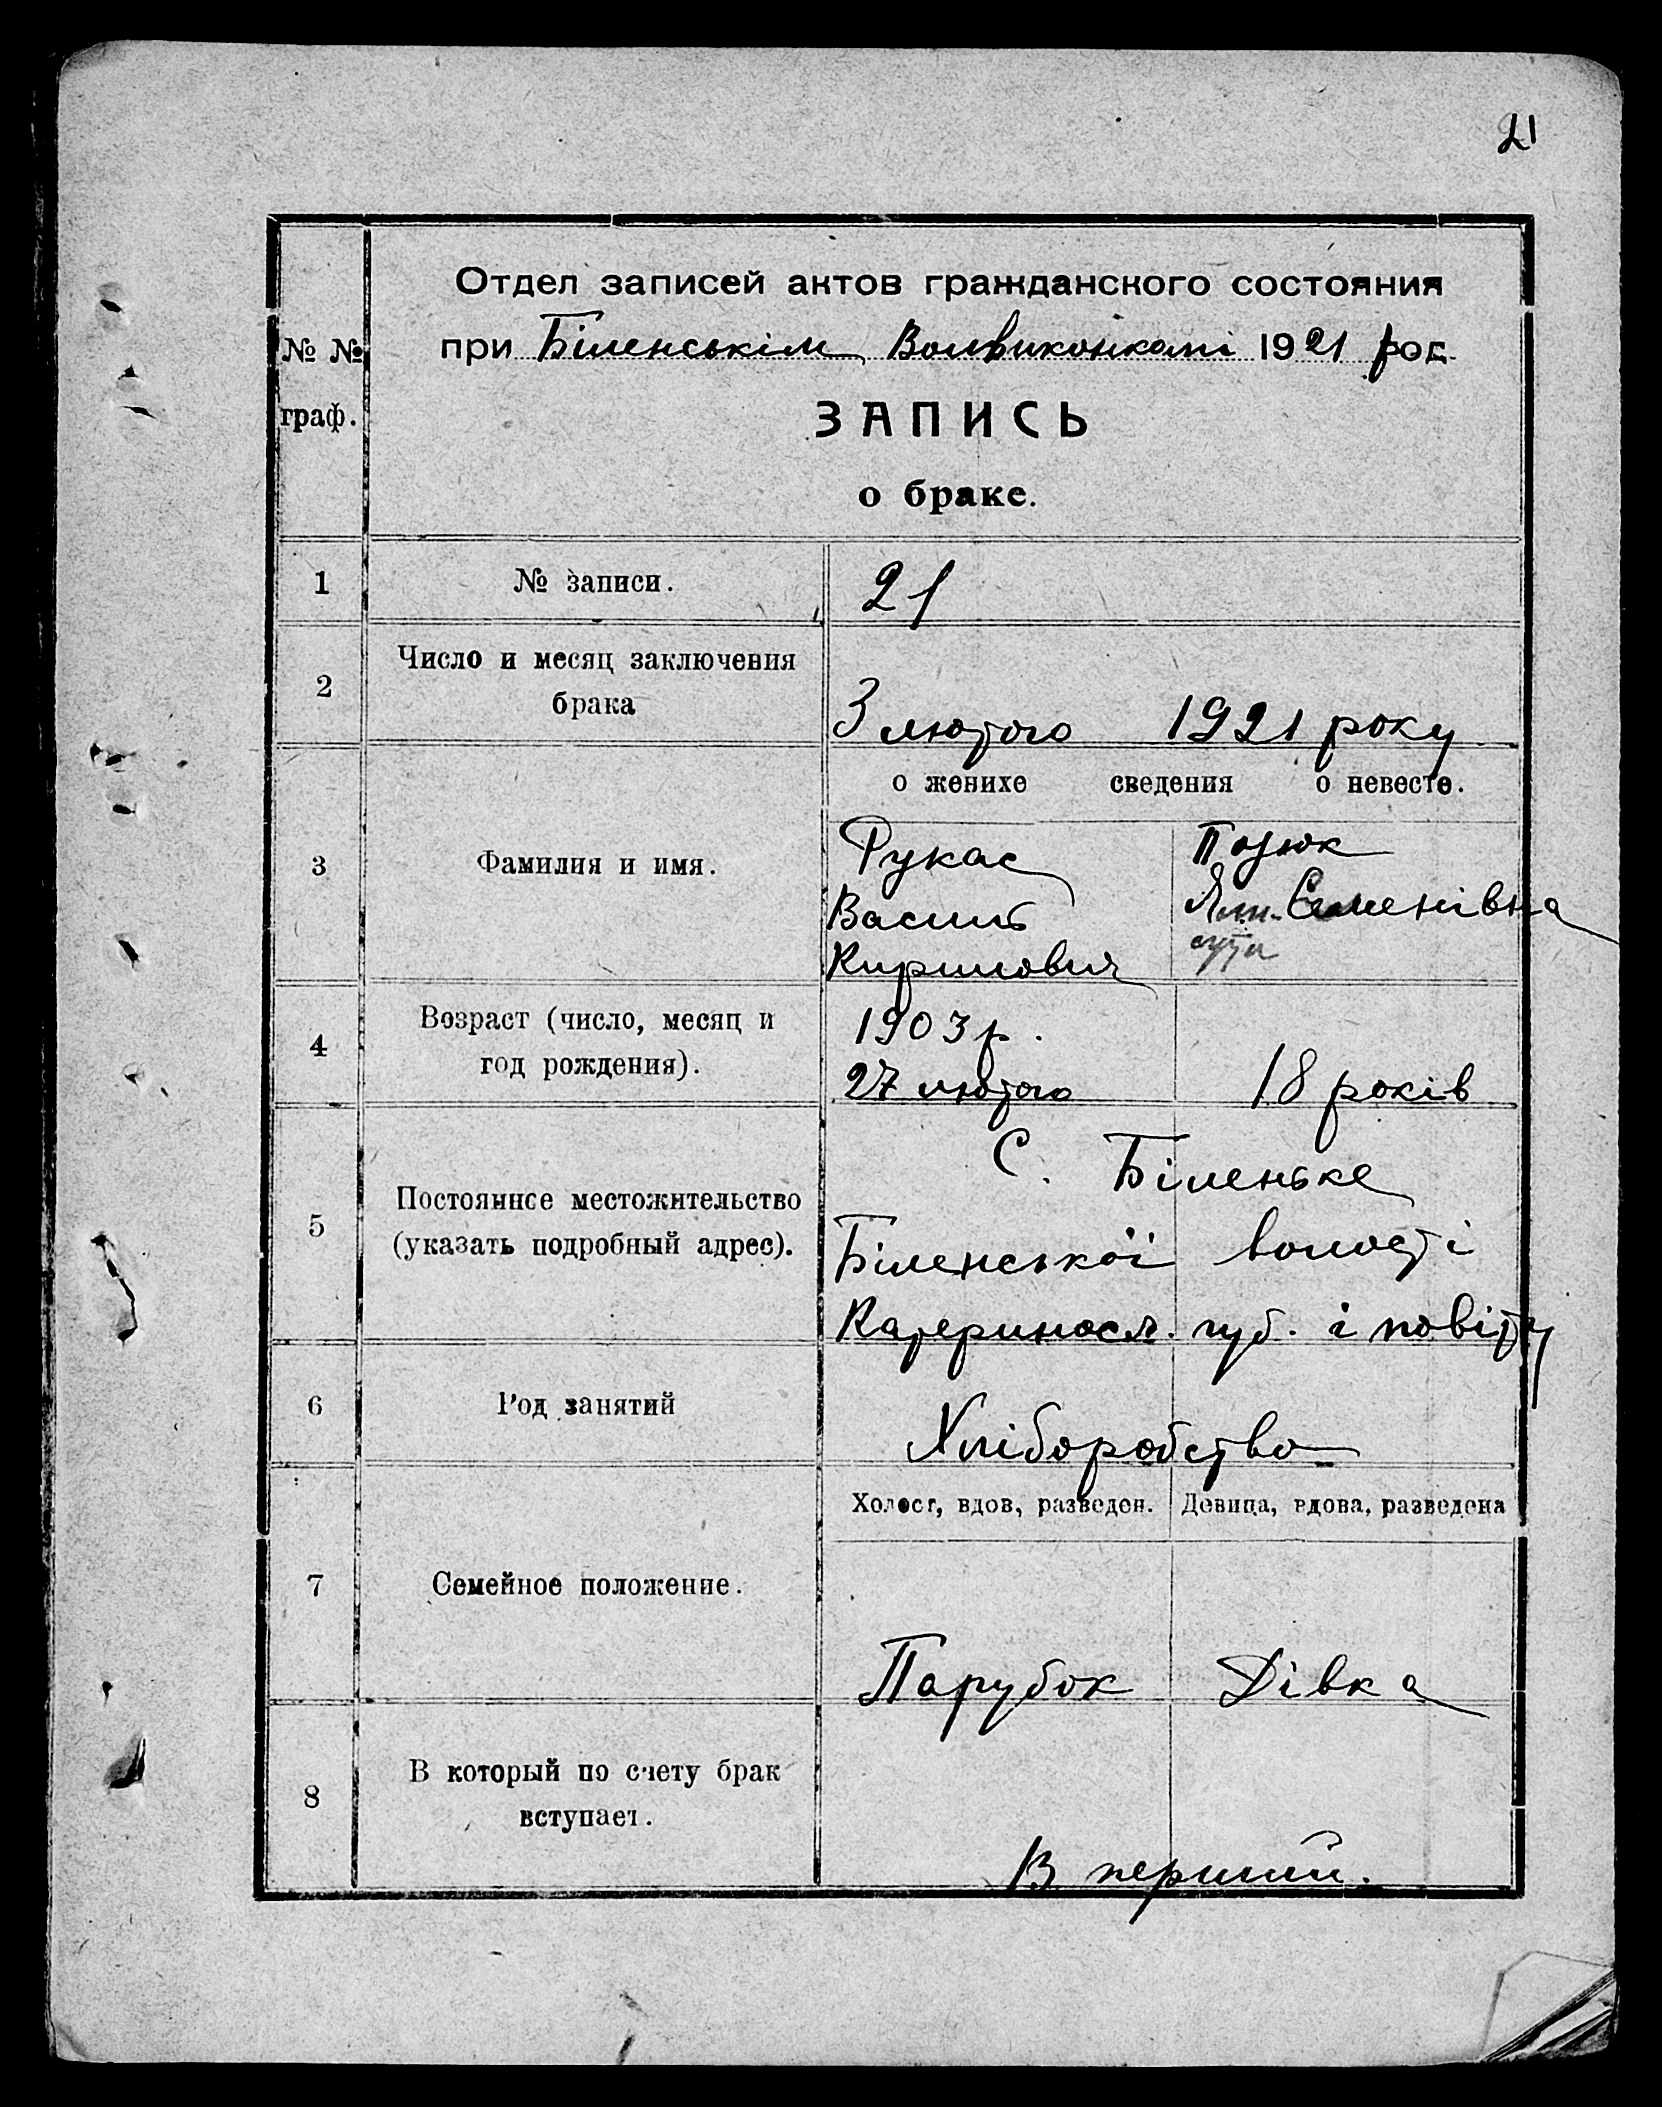 21
Отдел записей актов гражданского состояния
при Біленськім Волвиконкомі 1921 год
№ №
граф.
ЗАПИСЬ
о браке.
1 № записи. 21
2 Число и месяц заключения
брака
3 лютого 1921 року
о женихе сведения о невесте.
3 Фамилия и имя.
Рукас
Василь
Кирилович
Семенівна
4 Возраст (число, месяц и
год рождения).
1903 р.
27 лютого
18 років
5 Постоянное местожительство
(указать подробный адрес).
С. Біленьке
Біленської волості
Катериносл. губ. і повіту
6 Род занятий Хліборобство
Холост, вдов, разведен. Девица, вдова, разведена
7 Семейное положение.
Парубок Дівка
8 В который по счету брак
вступает.
В перший.